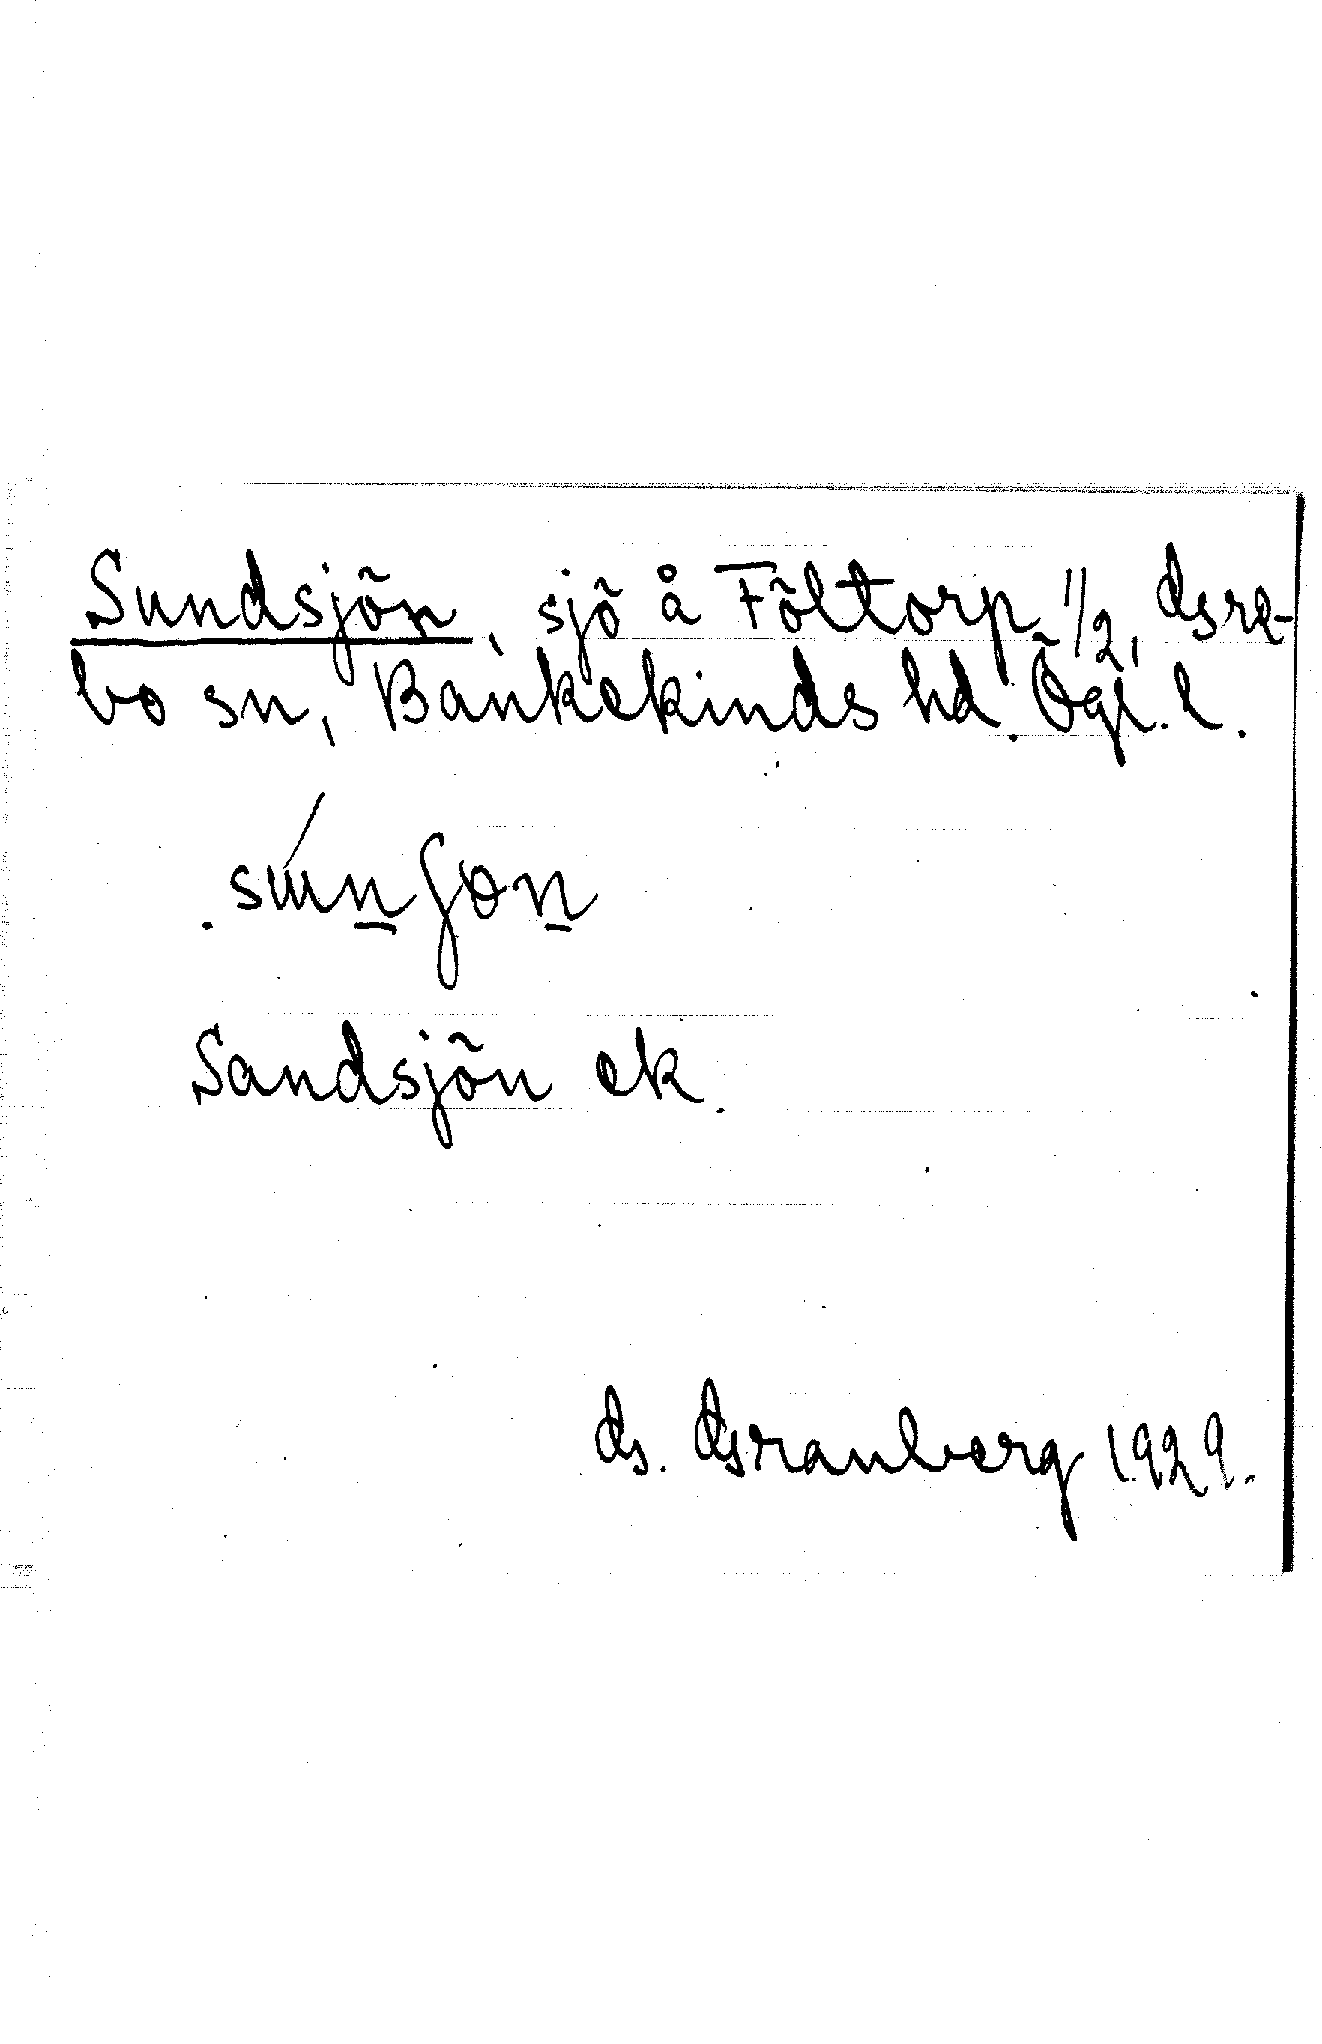 Sundsjön, sjö å Föltorp 1/2, Gre-
bo sn, Bankekinds hd. Ögl. l.
Sandsjön ek.
G. Granberg 1929.